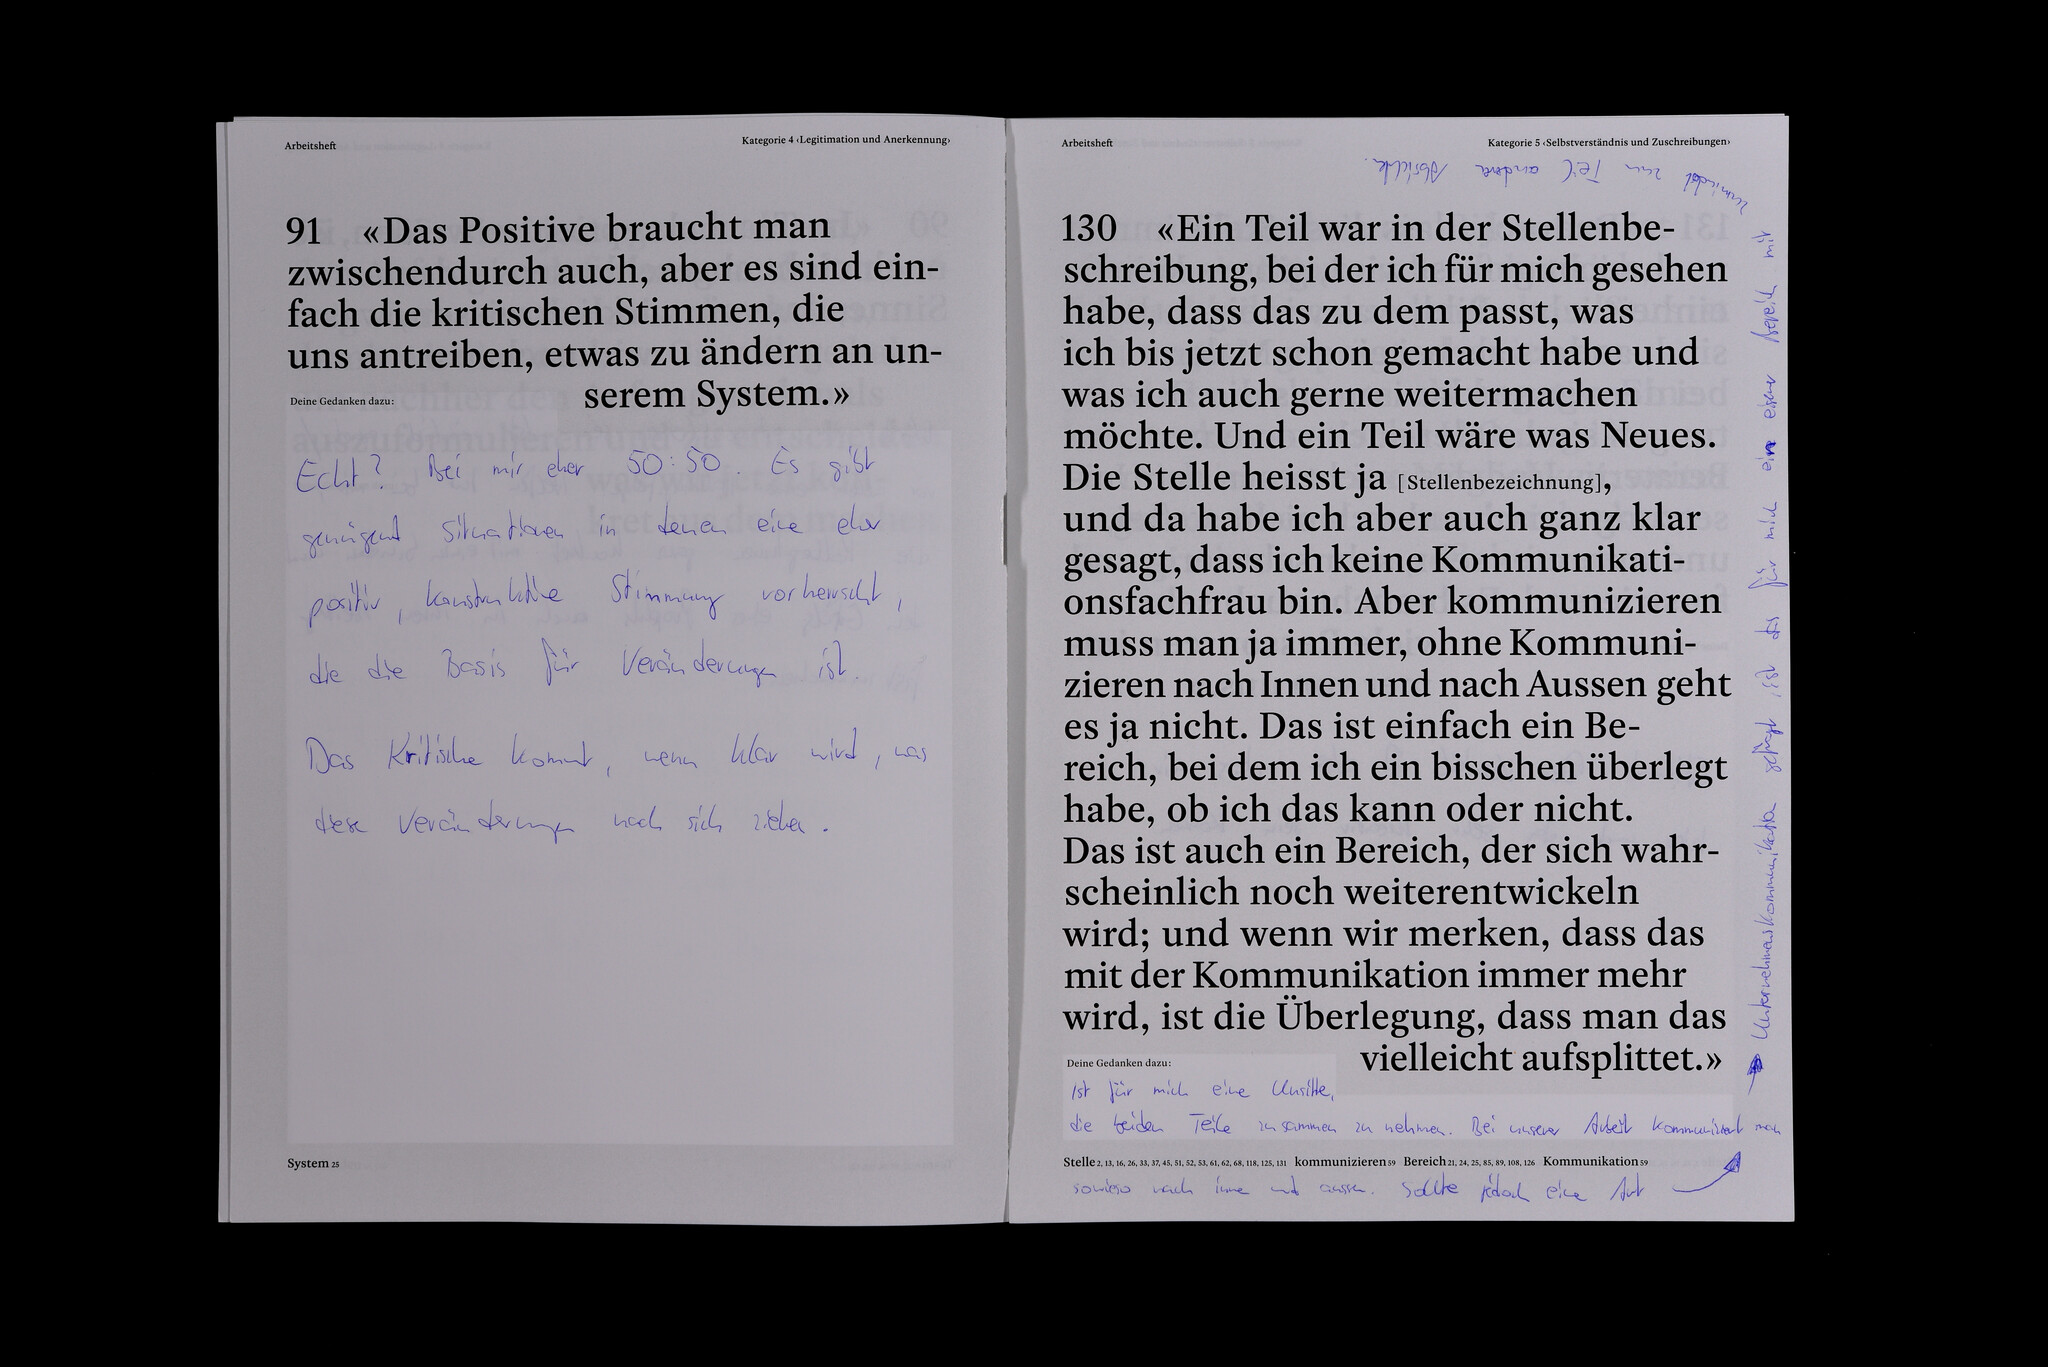 Arbeitsheft
Kategorie 4 ‹Legitimation und Anerkennung›
91 «Das Positive braucht man
zwischendurch auch, aber es sind ein-
fach die kritischen Stimmen, die
uns antreiben, etwas zu ändern an un-
serem System.»
Deine Gedanken dazu:
Echt? Bei mir eher 50:50. Es gibt
genügend Situationen in denen eine eher
positiv, konstruktive Stimmung vorherrscht,
die die Basis für Veränderungen ist.
Das Kritische kommt, wenn klar wird, was
diese Veränderungen nach sich ziehen.
System 25
Arbeitsheft
Kategorie 5 ‹Selbstverständnis und Zuschreibungen›
130 «Ein Teil war in der Stellenbe-
schreibung, bei der ich für mich gesehen
habe, dass das zu dem passt, was
ich bis jetzt schon gemacht habe und
was ich auch gerne weitermachen
möchte. Und ein Teil wäre was Neues.
Die Stelle heisst ja [Stellenbezeichnung],
und da habe ich aber auch ganz klar
gesagt, dass ich keine Kommunikati-
onsfachfrau bin. Aber kommunizieren
muss man ja immer, ohne Kommuni-
zieren nach Innen und nach Aussen geht
es ja nicht. Das ist einfach ein Be-
reich, bei dem ich ein bisschen überlegt
habe, ob ich das kann oder nicht.
Das ist auch ein Bereich, der sich wahr-
scheinlich noch weiterentwickeln
wird; und wenn wir merken, dass das
mit der Kommunikation immer mehr
wird, ist die Überlegung, dass man das
vielleicht aufsplittet.»
Deine Gedanken dazu:
Ist für mich eine Unsitte,
die beiden Teile zusammen zu nehmen. Bei unserer Arbeit kommuniziert man
Stelle 2, 13, 16, 26, 33, 37, 45, 51, 52, 53, 61, 62, 68, 118, 125, 131 kommunizieren 59 Bereich 21, 24, 25, 85, 89, 108, 126 Kommunikation 59
sowieso nach inne und aussen. Sollte jedoch eine Art
Unternehmenskommunikation gefragt, ist das für mich ein eigener Bereich mit
zumindest zum Teil andere Absichte.